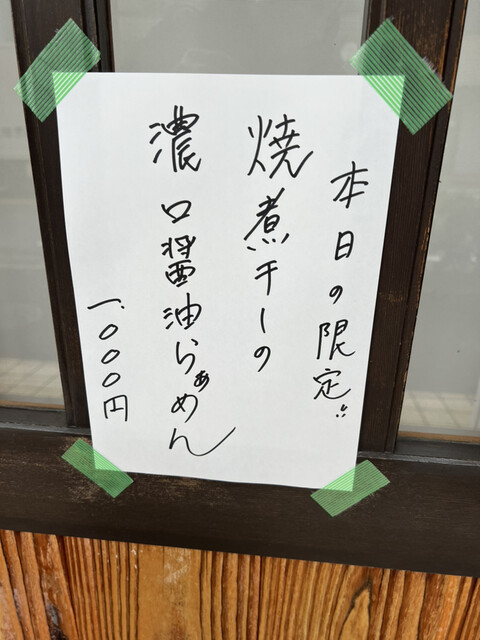 本日の限定‼
焼煮干しの
濃口醤油らぁめん
一、〇〇〇円